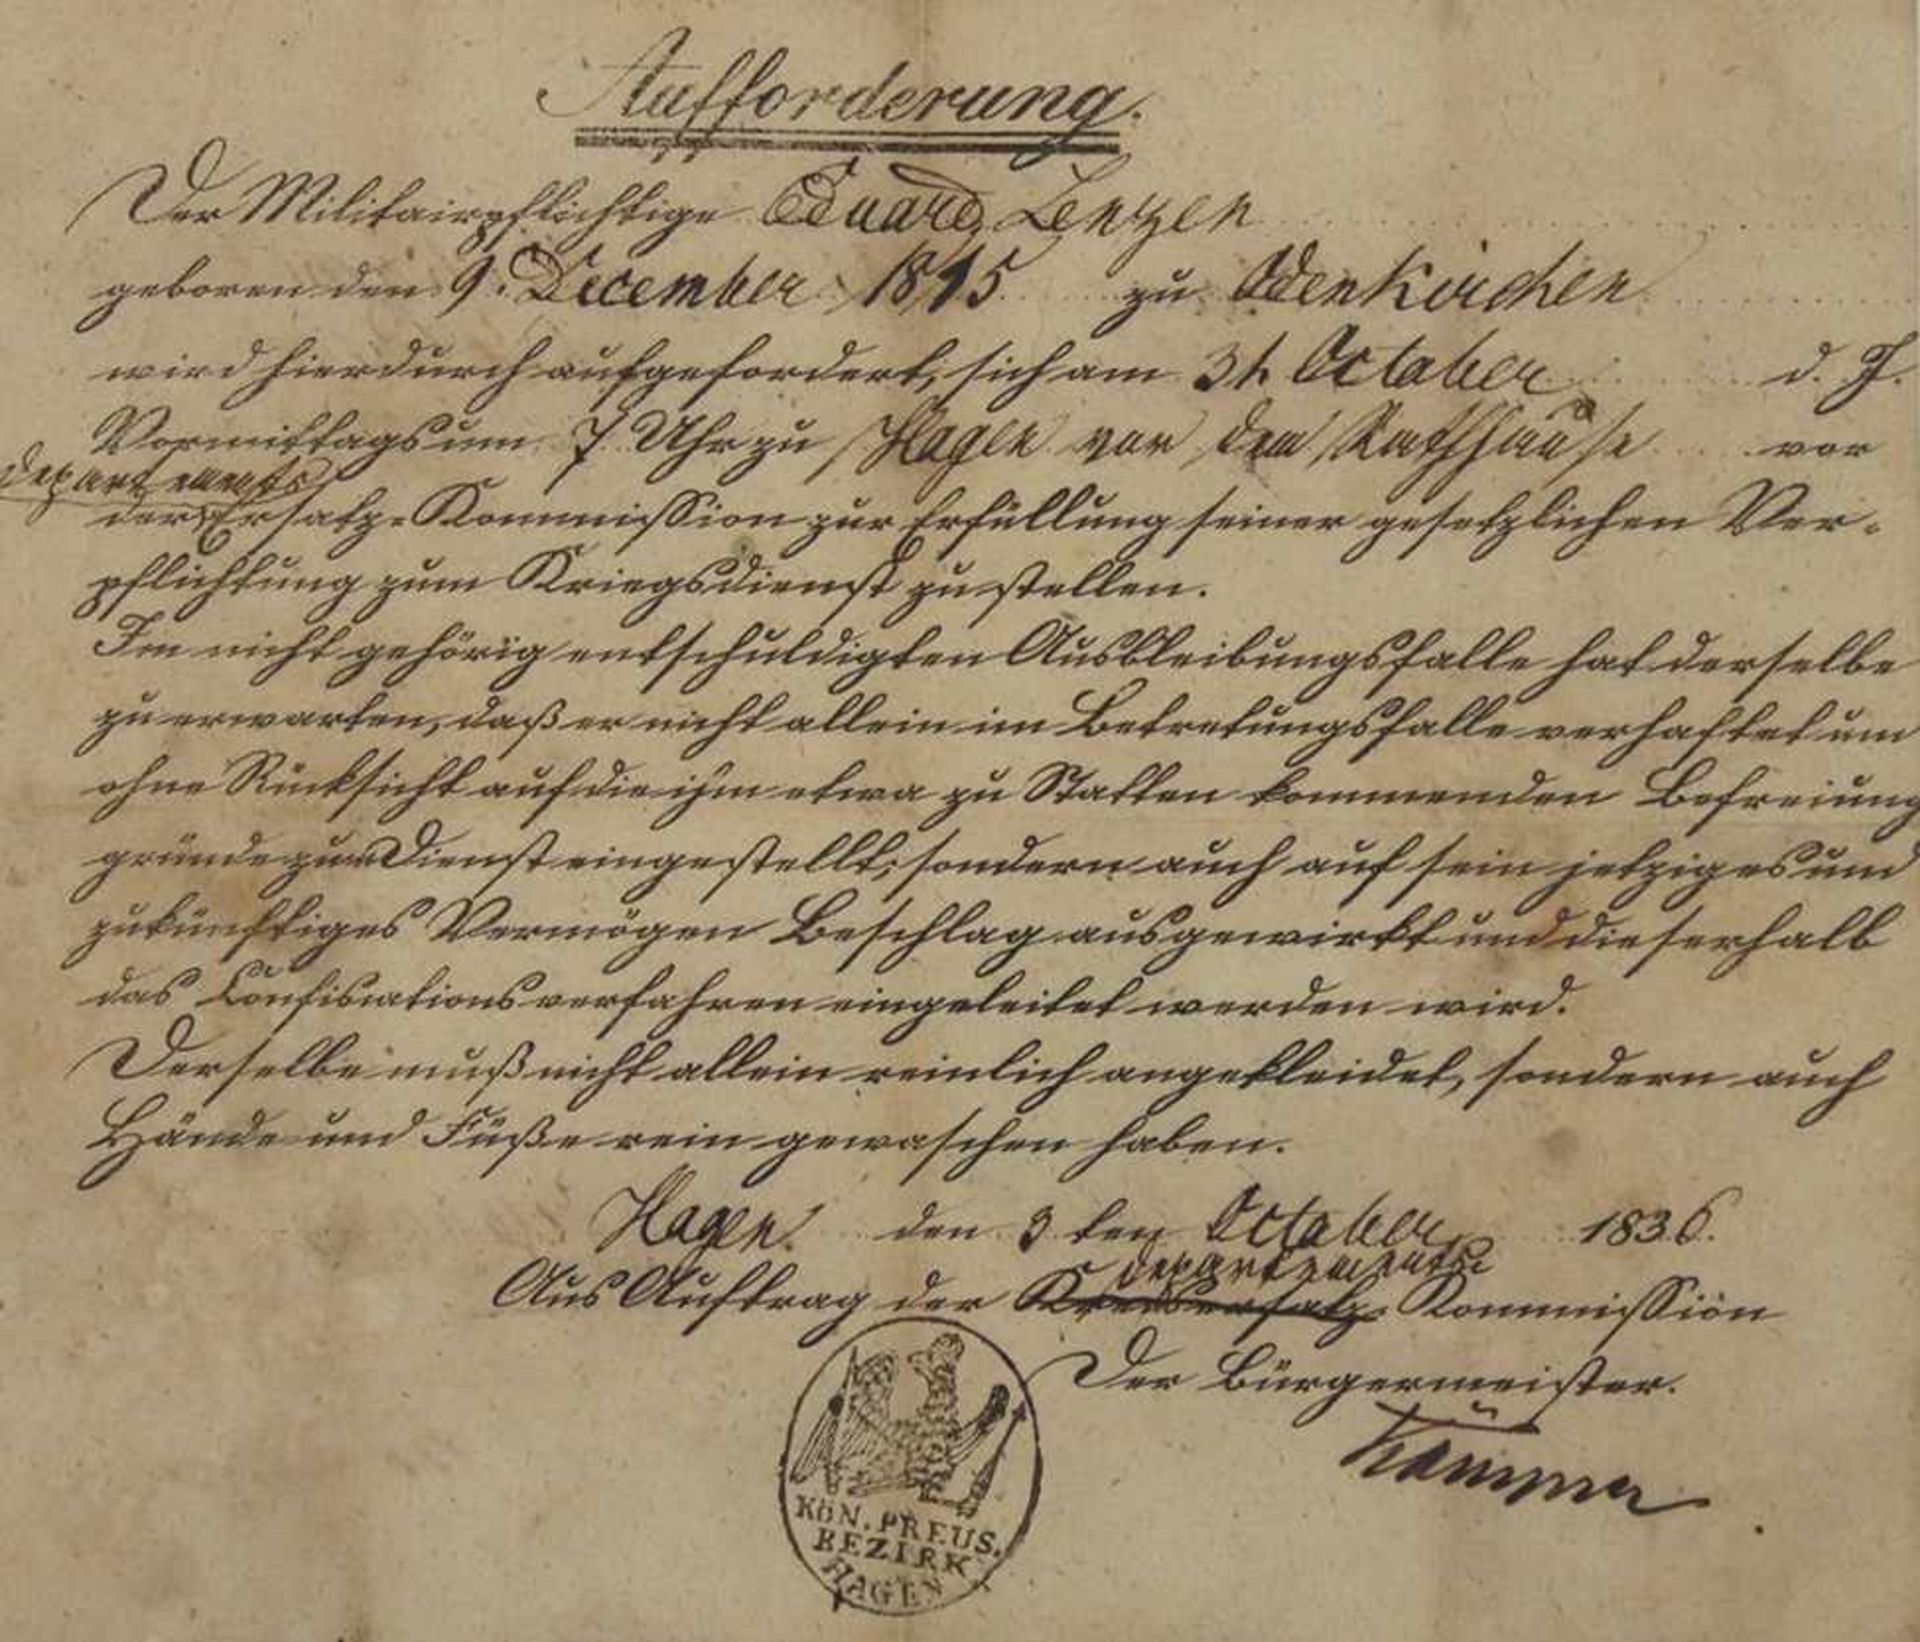 Aufforderung.
Der Militairpflichtige Eduard Lenzen
geboren den 9. December 1815 zu Odenkirchen
wird hierdurch aufgefordert, sich am October d. J.
Vormittags um 7 Uhr zu Hagen vor dem Rathhause vor
departements
der Ersatz-Kommission zur Erfüllung seiner gesetzlichen Ver-
pflichtung zum Kriegsdienst zu stellen.
Im nicht gehörig entschuldigten Ausbleibungsfalle hat derselbe
zu erwarten, daß er nicht allein im Betretungsfalle verhaftet und
ohne Rücksicht auf die ihm etwa zu Statten kommenden Befreiung
gründe zum Dienst eingestellt, sondern auch auf sein jetziges und
zukünftiges Vermögen Beschlag ausgewirkt und dieserhalb
das Confiscations verfahren eingeleitet werden wird.
Derselbe muß nicht allein reinlich angekleidet, sondern auch
Hände und Füße rein gewaschen haben.
Hagen den 3 ten October 1836.
departements
Aus Auftrag der Kreisersatz-Kommission
Der Bürgermeister.
KÖN. PREUS.
BEZIRK
HAGEN